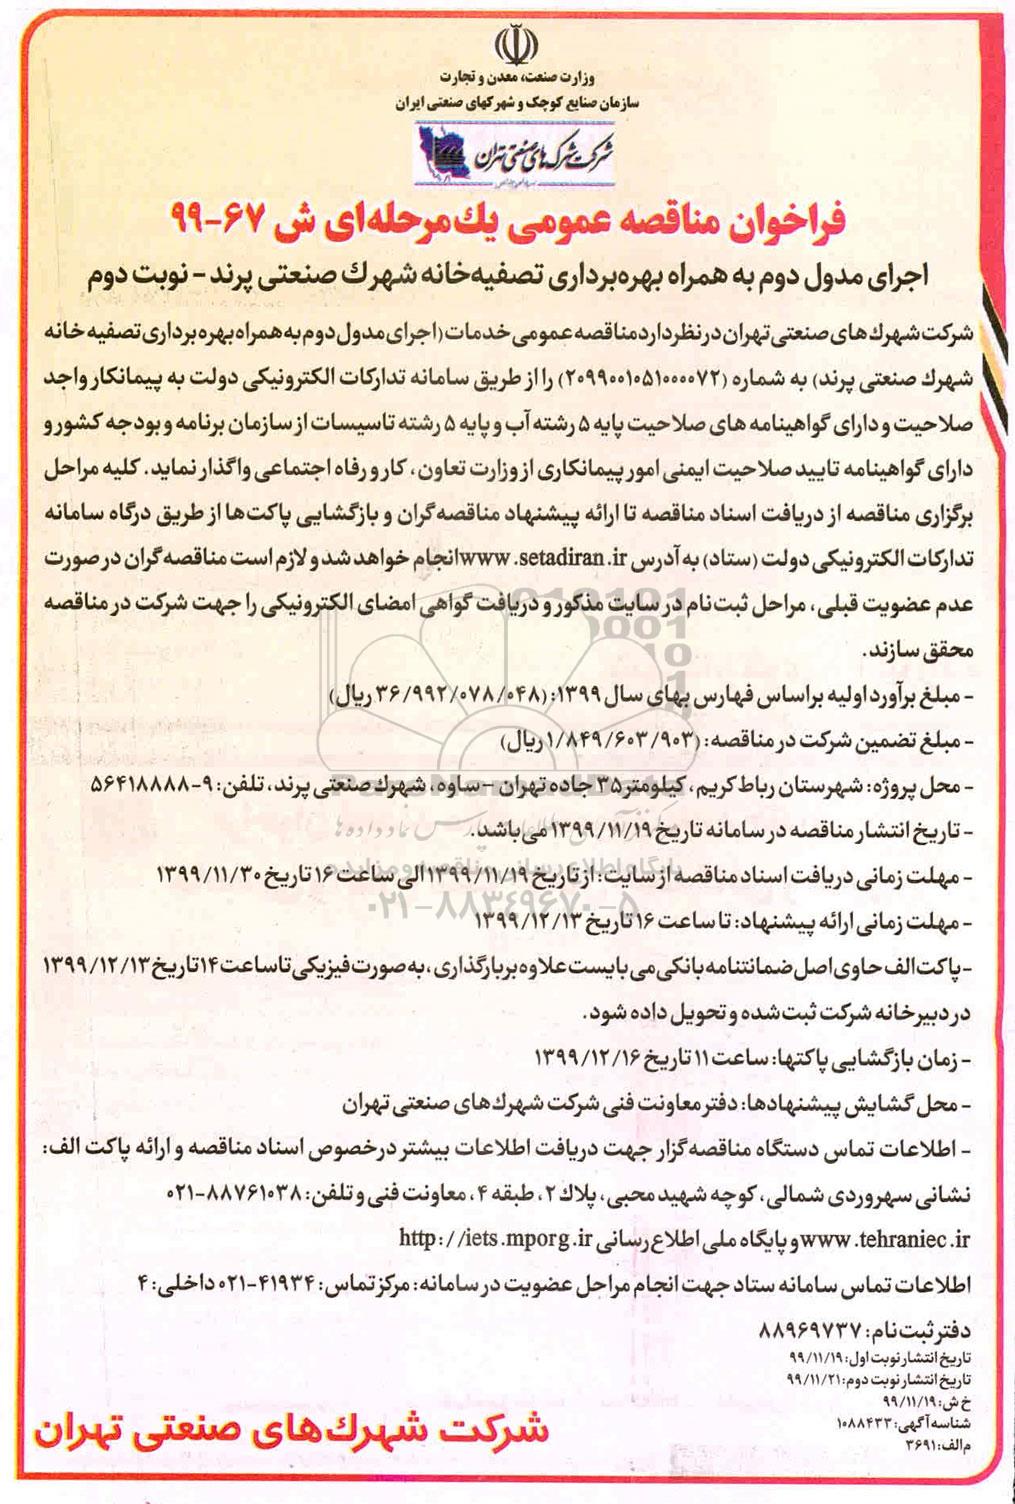 وزارت صنعت، معدن و تجارت
سازمان صنایع کوچک و شهرکهای صنعتی ایران
شرکت شهرک های صنعتی تهران
فراخوان مناقصه عمومی یك‌مرحله‌ای ش ۶۷-۹۹
اجرای مدول دوم به همراه بهره‌برداری تصفیه‌خانه شهرك صنعتی پرند – نوبت دوم
شرکت شهرك‌های صنعتی تهران در نظر دارد مناقصه عمومی خدمات (اجرای مدول دوم به همراه بهره برداری تصفیه خانه
شهرك صنعتی پرند) به شماره (۲۰۹۹۰۰۱۰۵۱۰۰۰۰۷۲) را از طریق سامانه تدارکات الکترونیکی دولت به پیمانکار واجد
صلاحیت و دارای گواهینامه های صلاحیت پایه ۵ رشته آب و پایه ۵ رشته تاسیسات از سازمان برنامه و بودجه کشور و
دارای گواهینامه تایید صلاحیت ایمنی امور پیمانکاری از وزارت تعاون، کار و رفاه اجتماعی واگذار نماید. کلیه مراحل
برگزاری مناقصه از دریافت اسناد مناقصه تا ارائه پیشنهاد مناقصه‌گران و بازگشایی پاکت‌ها از طریق درگاه سامانه
تدارکات الکترونیکی دولت (ستاد) به آدرس www.setadiran.ir انجام خواهد شد و لازم است مناقصه‌گران در صورت
عدم عضویت قبلی، مراحل ثبت‌نام در سایت مذکور و دریافت گواهی امضای الکترونیکی را جهت شرکت در مناقصه
محقق سازند.
- مبلغ برآورد اولیه براساس فهارس بهای سال ۱۳۹۹: (۳۶/۹۹۲/۰۷۸/۰۴۸ ریال)
- مبلغ تضمین شرکت در مناقصه: (۱/۸۴۹/۶۰۳/۹۰۳ ریال)
- محل پروژه: شهرستان رباط کریم، کیلومتر ۳۵ جاده تهران – ساوه، شهرك صنعتی پرند، تلفن: ۹-۵۶۴۱۸۸۸۸
- تاریخ انتشار مناقصه در سامانه تاریخ ۱۳۹۹/۱۱/۱۹ می‌باشد.
- مهلت زمانی دریافت اسناد مناقصه از سایت: از تاریخ ۱۳۹۹/۱۱/۱۹ الی ساعت ۱۶ تاریخ ۱۳۹۹/۱۱/۳۰
پایگاه اطلاع رسانی مناقصه و مزایده
۰۲۱-۸۸۳۴۹۶۷۰-۵
- مهلت زمانی ارائه پیشنهاد: تا ساعت ۱۶ تاریخ ۱۳۹۹/۱۲/۱۳
- پاکت الف حاوی اصل ضمانتنامه بانکی می بایست علاوه بر بارگذاری، به صورت فیزیکی تا ساعت ۱۴ تاریخ ۱۳۹۹/۱۲/۱۳
در دبیرخانه شرکت ثبت شده و تحویل داده شود.
- زمان بازگشایی پاکتها: ساعت ۱۱ تاریخ ۱۳۹۹/۱۲/۱۶
- محل گشایش پیشنهادها: دفتر معاونت فنی شرکت شهرك‌های صنعتی تهران
- اطلاعات تماس دستگاه مناقصه‌گزار جهت دریافت اطلاعات بیشتر درخصوص اسناد مناقصه و ارائه پاکت الف:
نشانی سهروردی شمالی، کوچه شهید محبی، پلاك ۲، طبقه ۴، معاونت فنی و تلفن: ۸۸۷۶۱۰۳۸-۰۲۱
www.tehraniec.ir و پایگاه ملی اطلاع‌رسانی http://iets.mporg.ir
اطلاعات تماس سامانه ستاد جهت انجام مراحل عضویت در سامانه: مرکز تماس: ۴۱۹۳۴-۰۲۱ داخلی: ۴
دفتر ثبت نام: ۸۸۹۶۹۷۳۷
تاریخ انتشار نوبت اول: ۹۹/۱۱/۱۹
تاریخ انتشار نوبت دوم: ۹۹/۱۱/۲۱
خ ش: ۹۹/۱۱/۱۹
شناسه آگهی: ۱۰۸۸۴۳۳
م الف: ۳۶۹۱
شرکت شهرك‌های صنعتی تهران